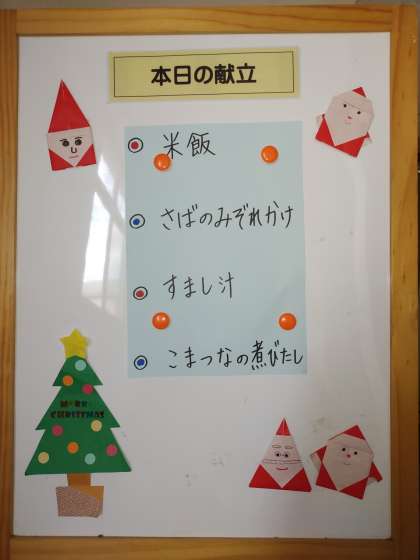 本日の献立
米飯
さばのみぞれかけ
すまし汁
こまつなの煮びたし
MERRY
CHRISTMAS